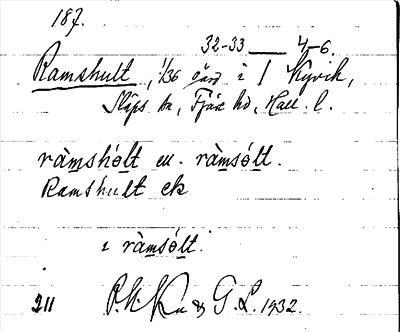 187.
32-33 — 4-6.
Ramshult, 1/36 gård i
Släps sn, Fjäre hd, Hall. l.
ràmshólt el. ràmsólt.
Ramshult ek
i ràmsólt.
211 G. L. 1932.